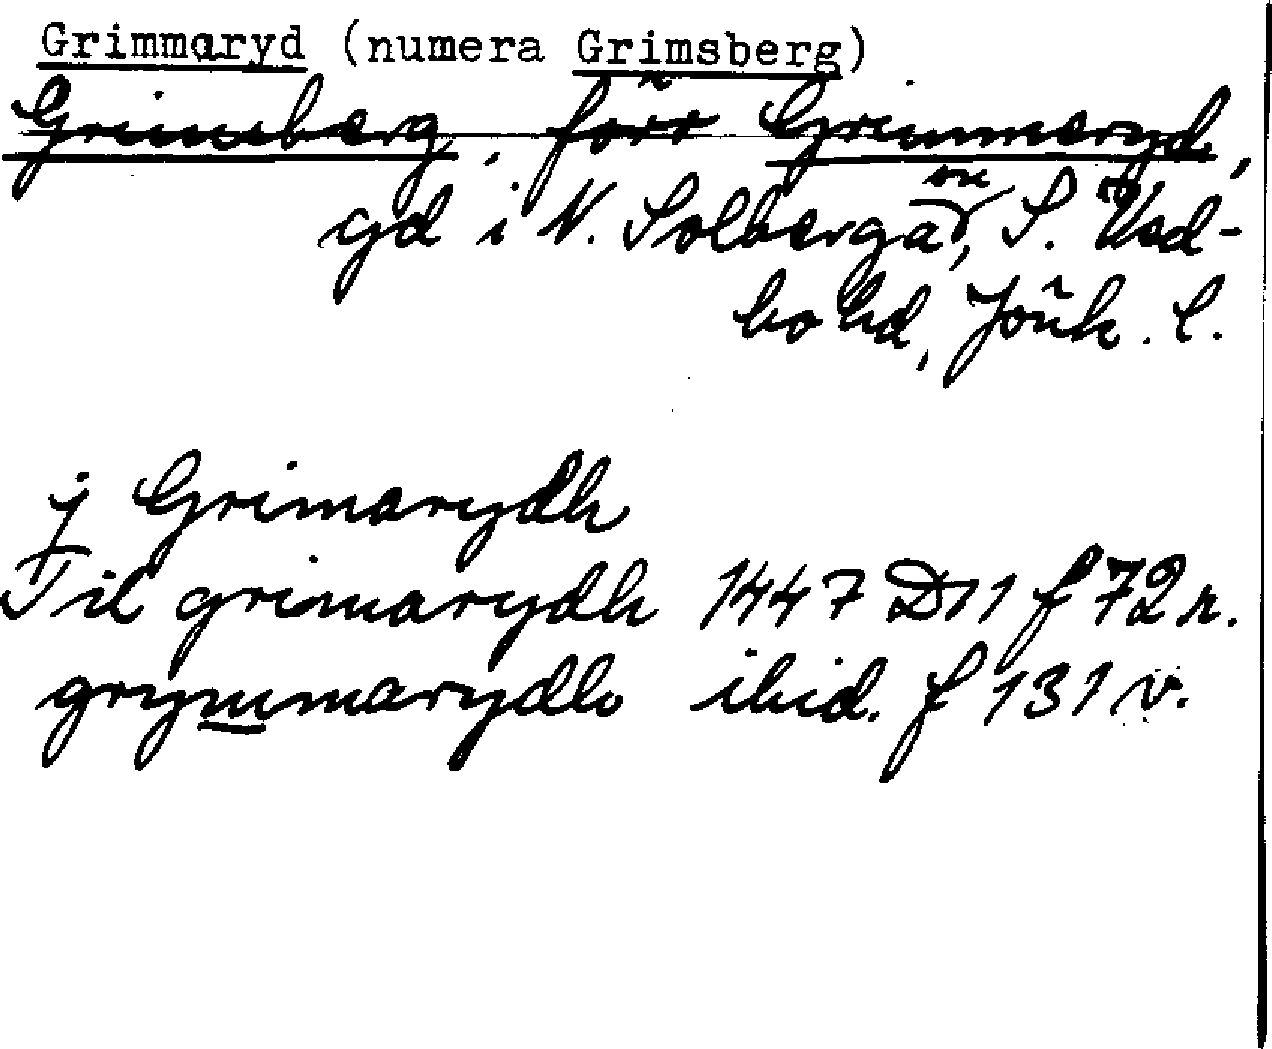 Grimmaryd (numera Grimsberg)
Grimsberg, förr Grimmaryd,
gd i N. Solberga sn, S. Ved-
bo hd, Jönk. l.
j Grimarydh
Til grimarydh 1447 D 11 f 72 r.
grymmarydh ibid. f 131 v.